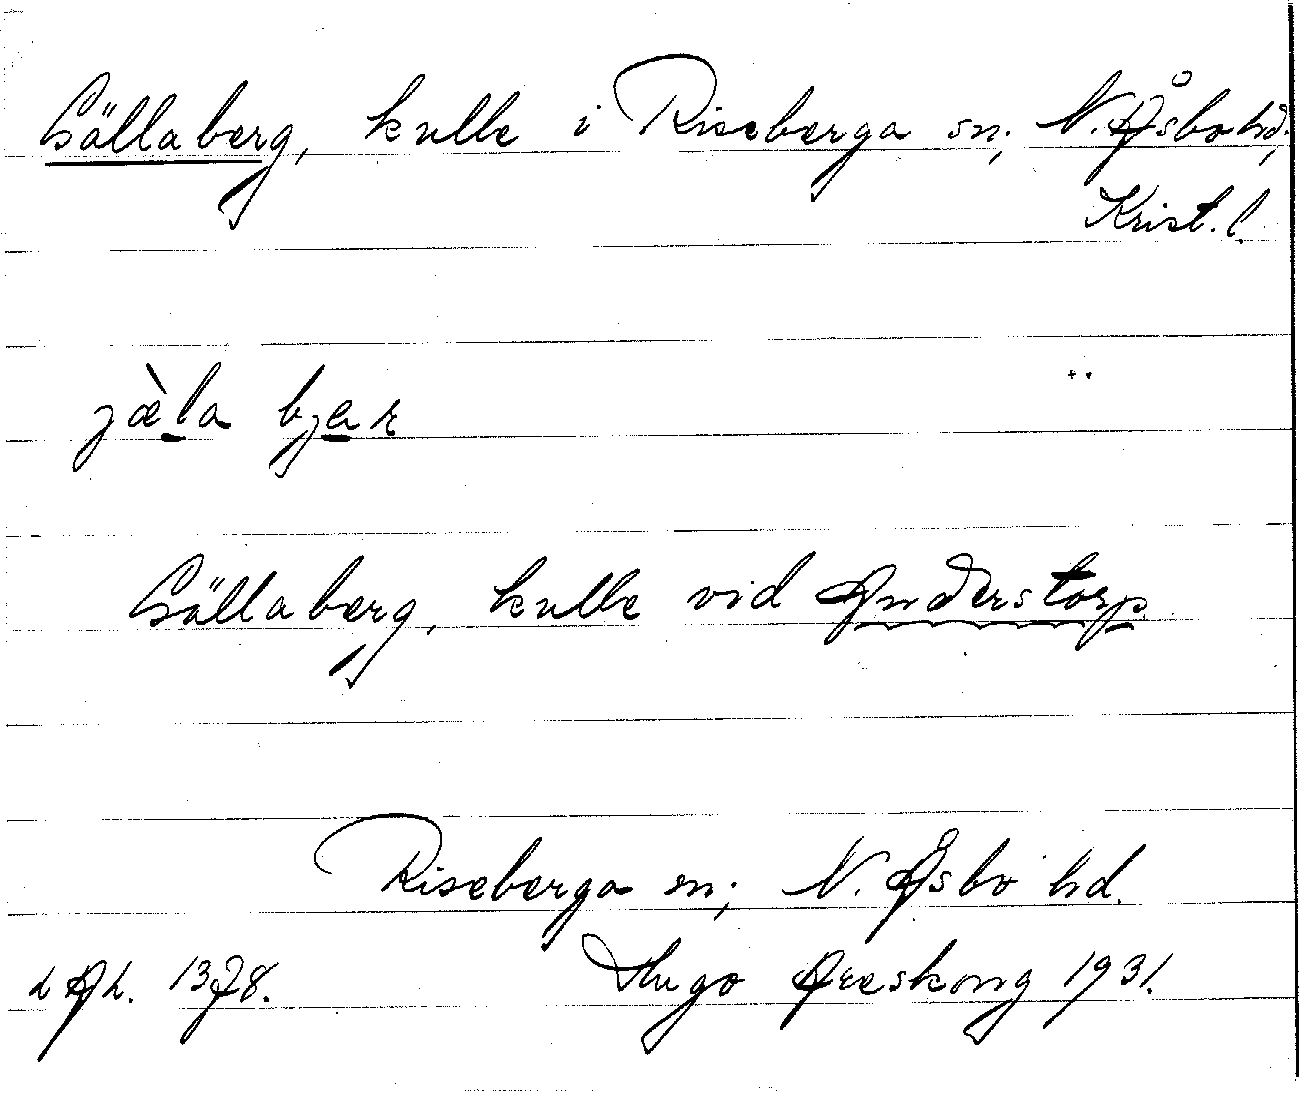 Gällaberg, kulle i Riseberga sn; N. Åsbo hd;
Krist. l.
jæ̀la bjar
Gällaberg, kulle vid Anderstorp.
Riseberga sn; N. Åsbo hd.
Hugo Areskoug 1931.